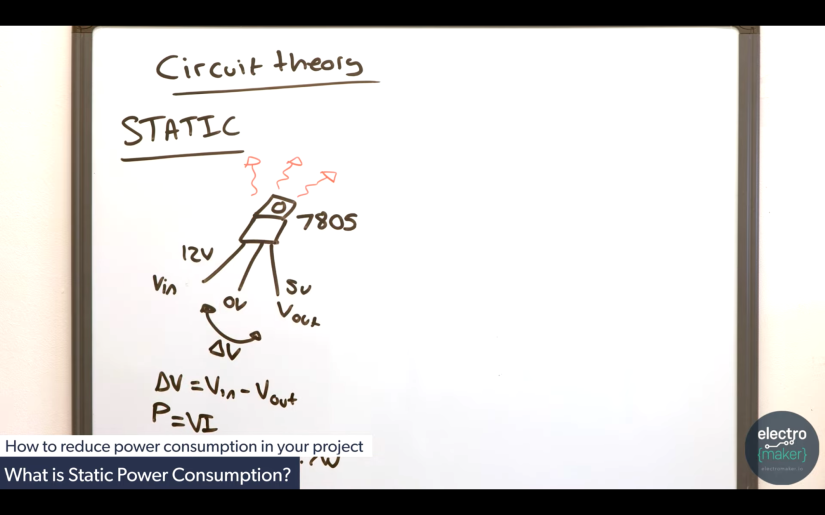 Circuit theory
STATIC
7805
12V
Vin
0V
5V
Vout
ΔV
ΔV = Vin - Vout
P = VI
How to reduce power consumption in your project
What is Static Power Consumption?
electro
{maker}
electromaker.io